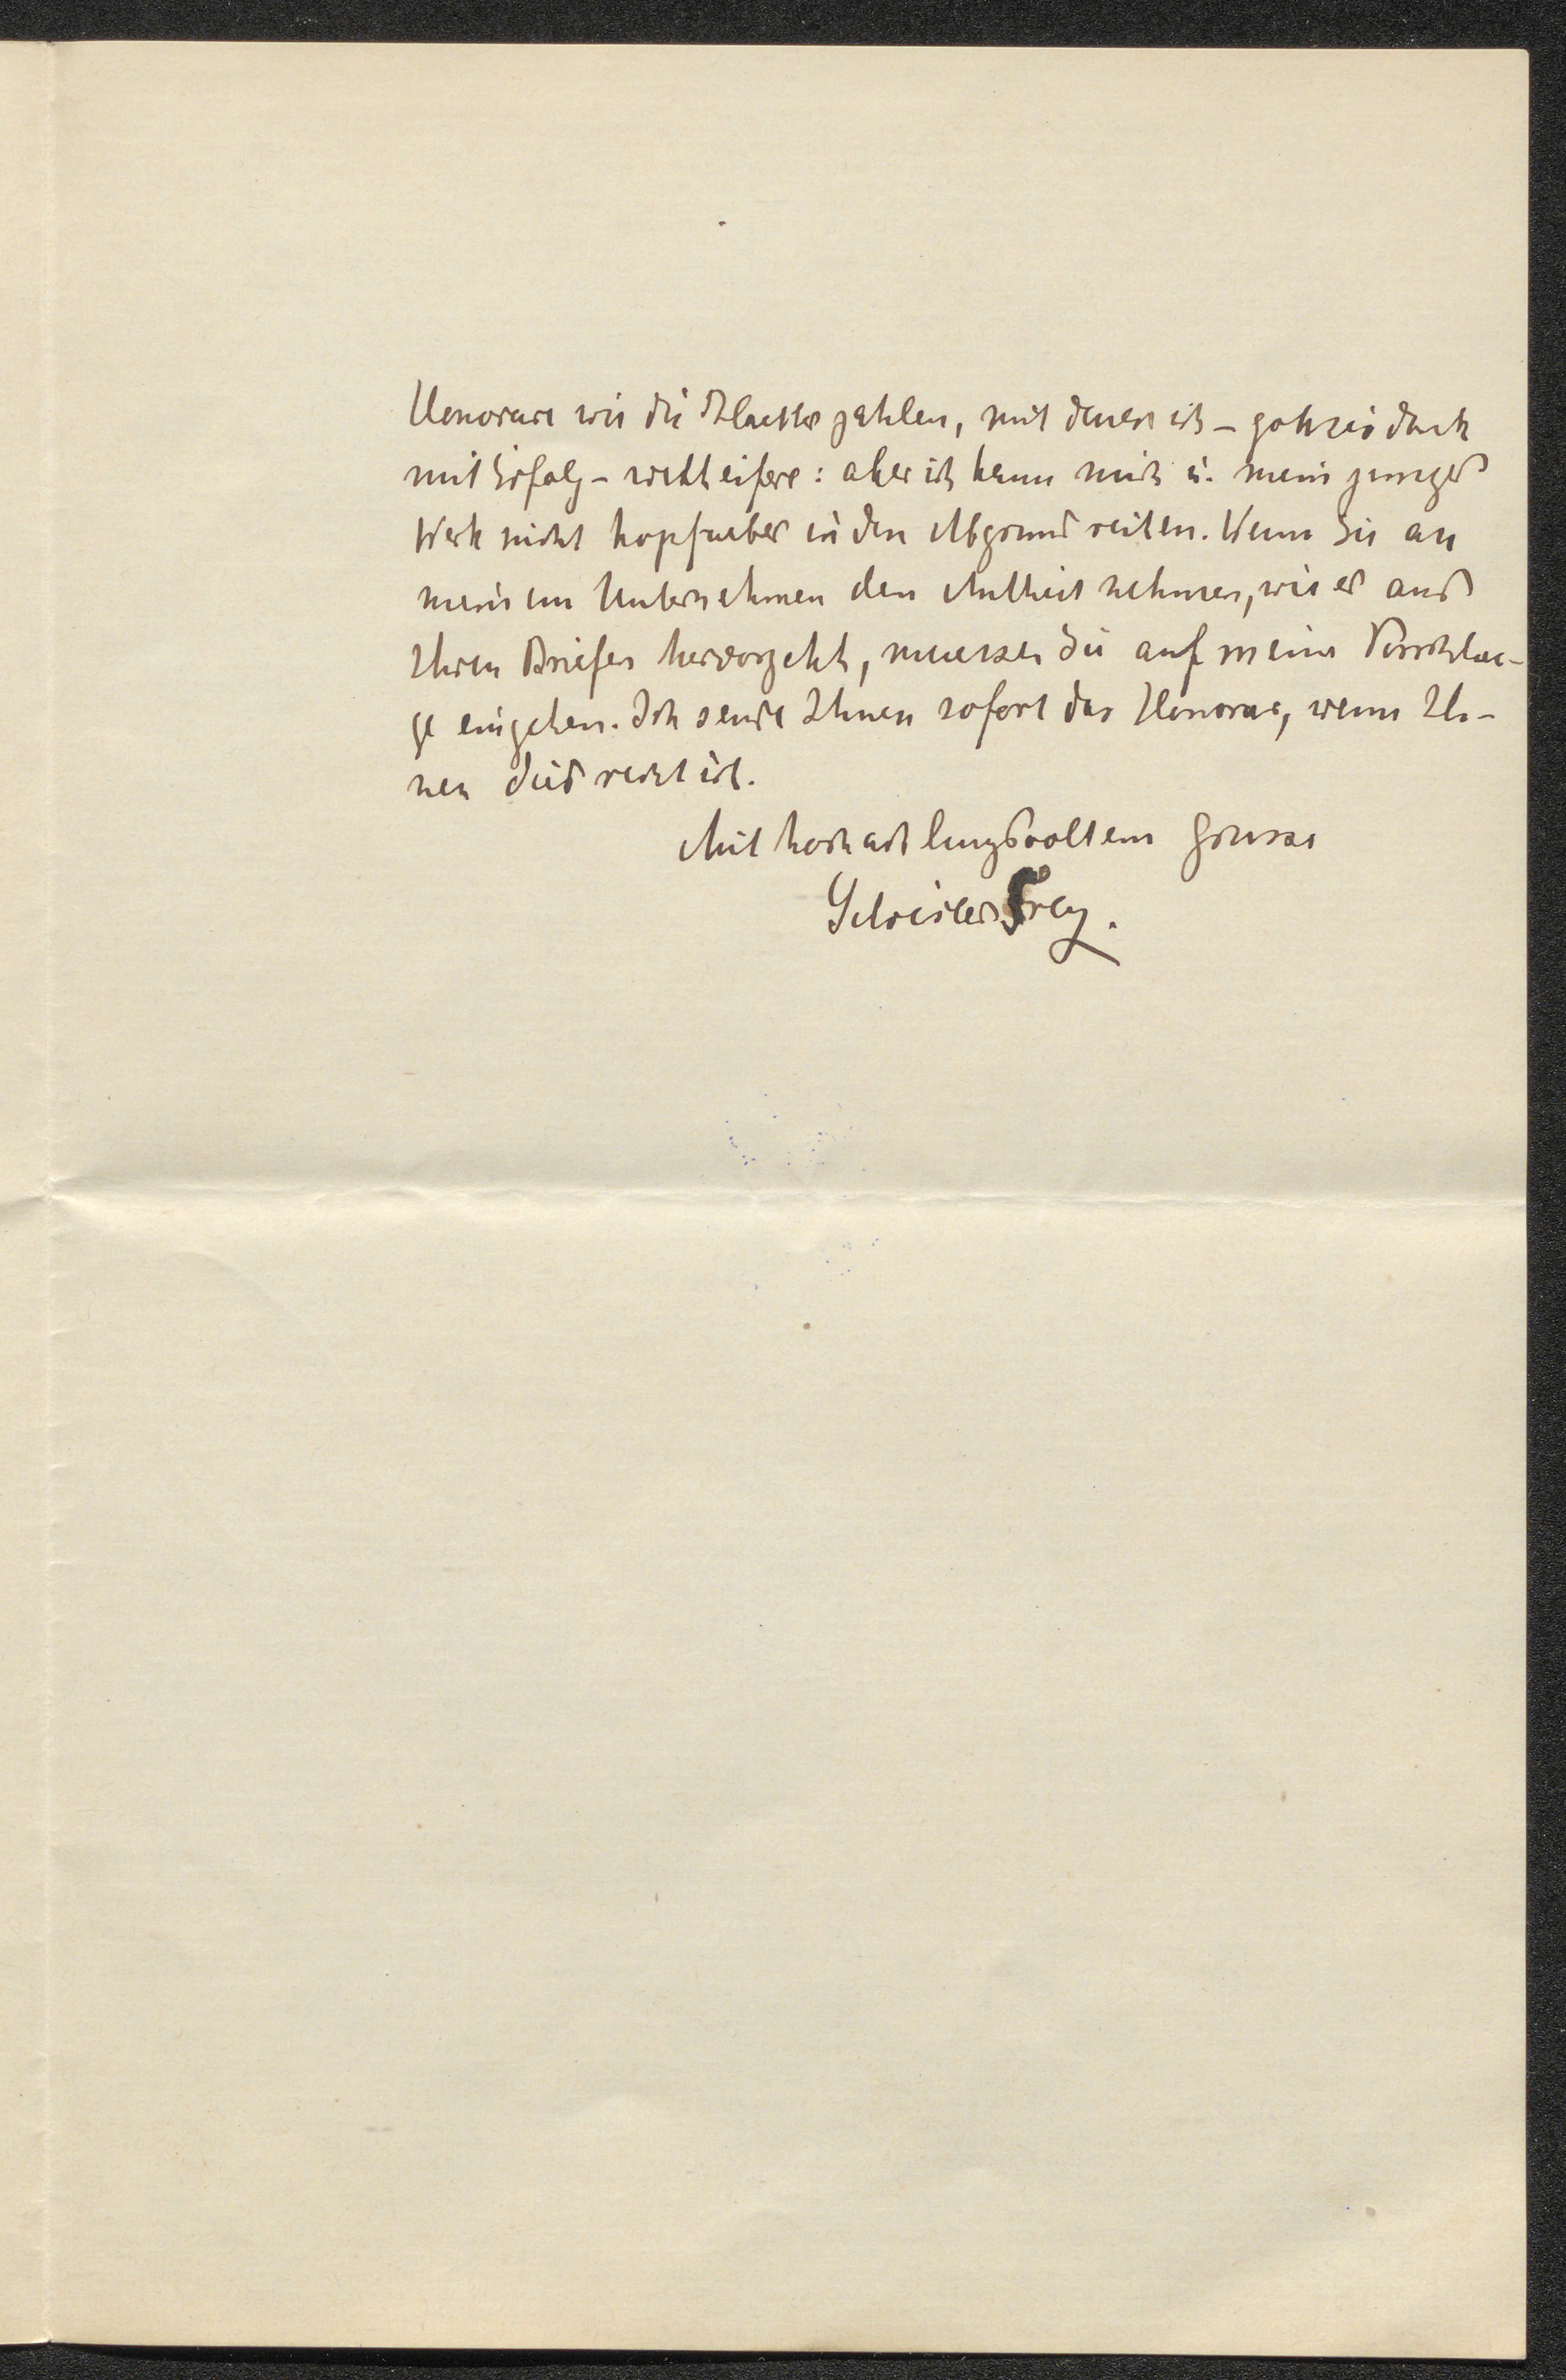 Honorare wie die Blaetter zahlen, mit denen ich – gott sei dank
mit Erfolg – wetteifere: aber ich kann mich u. mein junges
Werk nicht kopfueber in den Abgrund reiten. Wenn Sie an
meinem Unternehmen den Antheil nehmen, wie es aus
Ihren Briefen hervorgeht, muessen Sie auf meine Vorschlae-
ge eingehen. Ich sende Ihnen sofort das Honorar, wenn Ih-
nen dies recht ist.
Mit hochachtungsvollem Grusse
Frey.